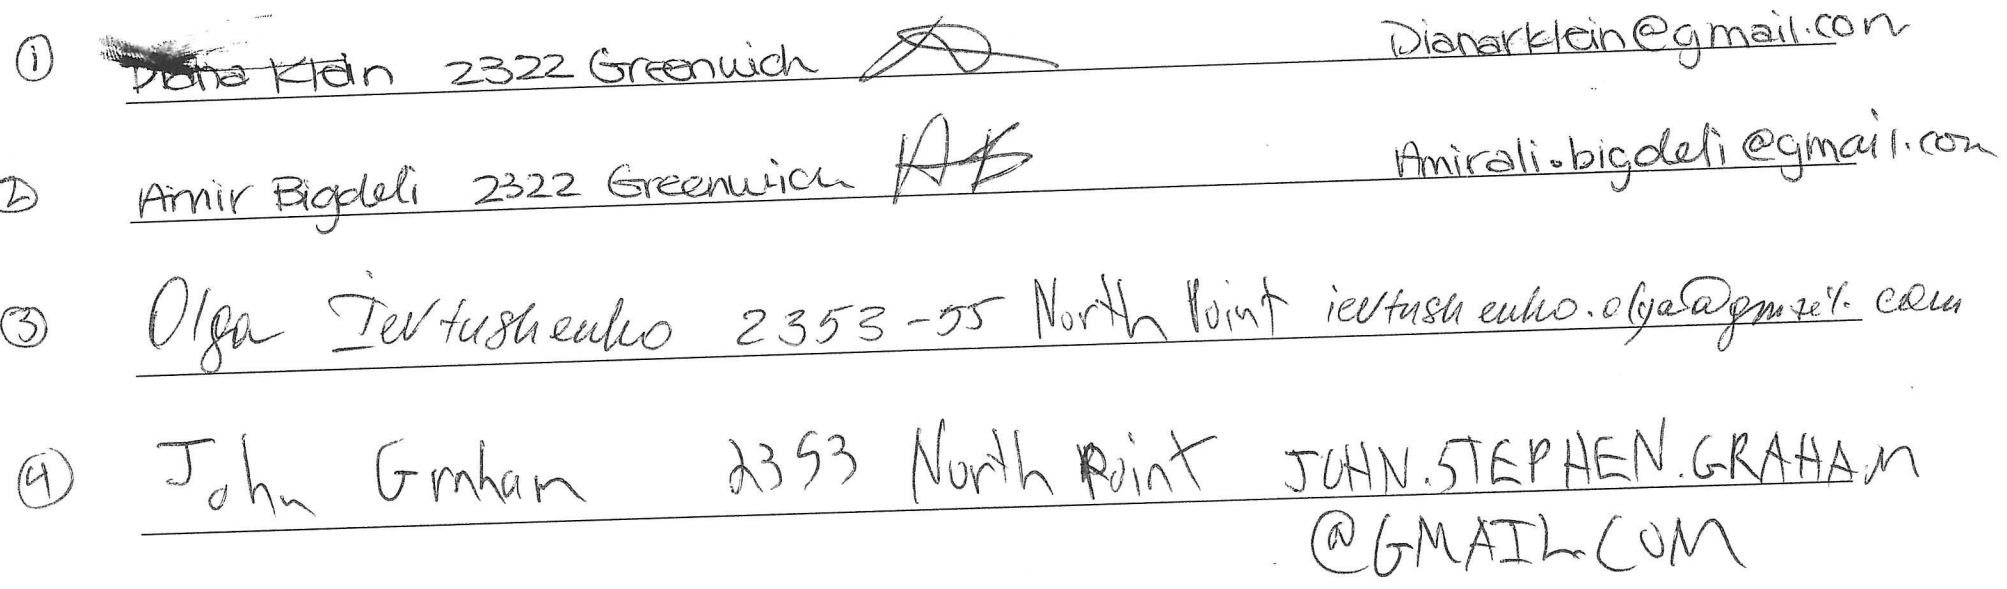 ① Diana Klein 2322 Greenwich Dianarklein@gmail.com
② Amir Bigdeli 2322 Greenwich AB Amirali.bigdeli@gmail.com
③ Olga Ievtushenko 2353-55 North Point ievtushenko.olya@gmail.com
④ John Graham 2353 North Point JOHN.STEPHEN.GRAHAM
@GMAIL.COM